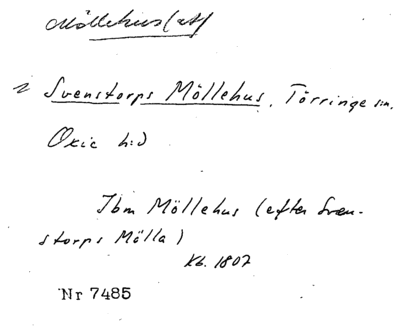 Möllehus(et)
Svenstorps Möllehus, Törringe sn.
Oxie hd
Ibm Möllehus (efter Sven-
storps Mölla)
Kb. 1807
Nr 7485